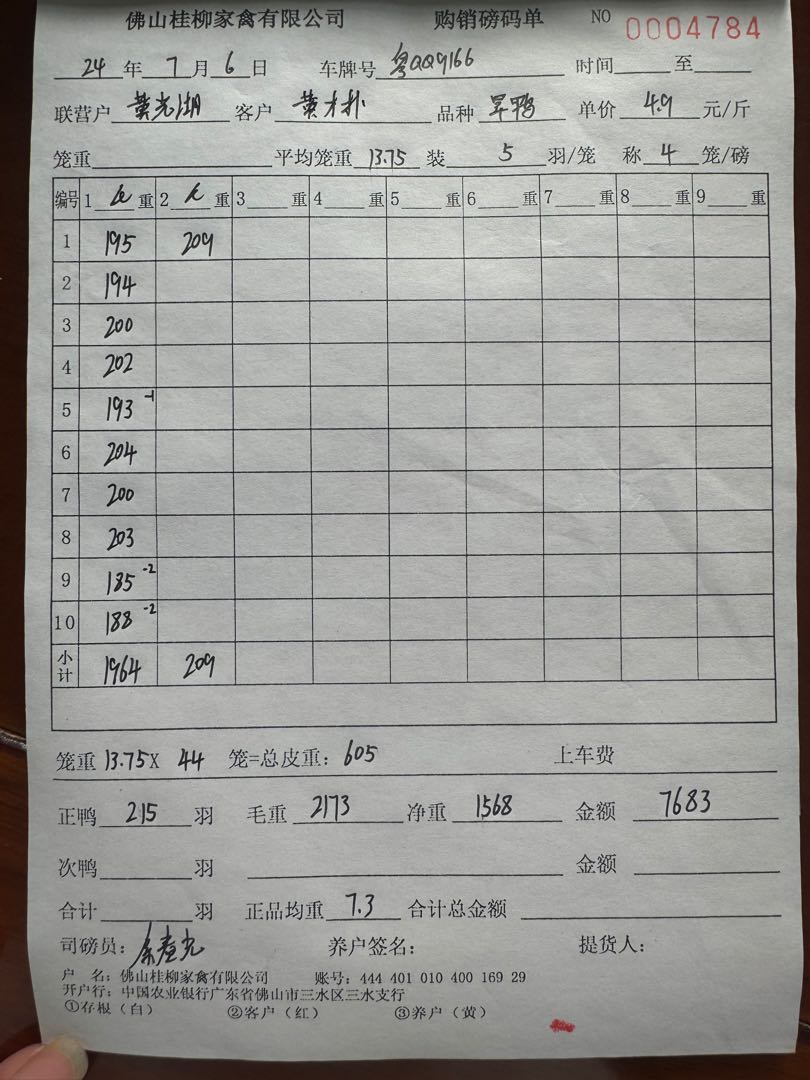 佛山桂柳家禽有限公司 购销磅码单 NO 0004784
24 年 7 月 6 日 车牌号 粤QQ9166 时间 至
联营户 黄光湖 客户 黄才朴 品种 旱鸭 单价 4.9 元/斤
笼重 平均笼重 13.75 装 5 羽/笼 称 4 笼/磅
编号 1 重 2 重 3 重 4 重 5 重 6 重 7 重 8 重 9 重
1 195 209
2 194
3 200
4 202
5 193 -1
6 204
7 200
8 203
9 185 -2
10 188 -2
小计 1964 209
笼重 13.75X 44 笼=总皮重: 605 上车费
正鸭 215 羽 毛重 2173 净重 1568 金额 7683
次鸭 羽 金额
合计 羽 正品均重 7.3 合计总金额
司磅员: 养户签名: 提货人:
户 名: 佛山桂柳家禽有限公司 账号: 444 401 010 400 169 29
开户行: 中国农业银行广东省佛山市三水区三水支行
①存根(白) ②客户(红) ③养户(黄)